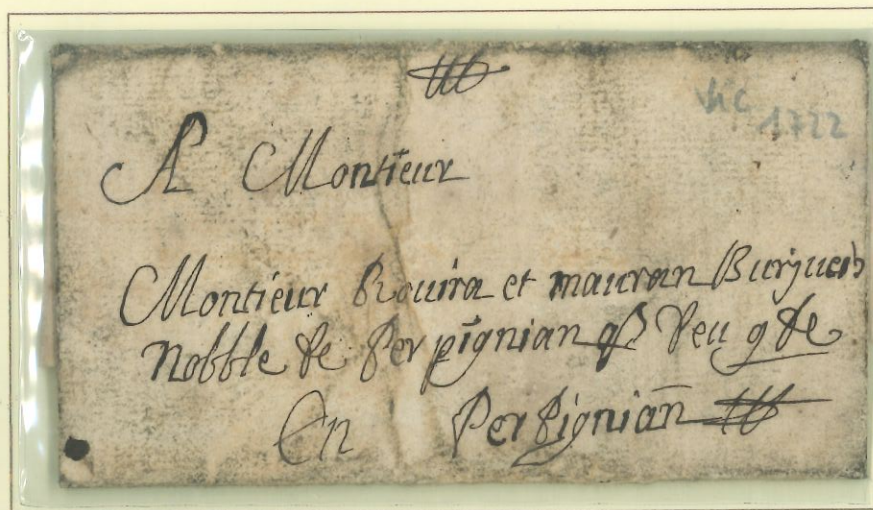 Vic
1722
A Monsieur
Monsieur Rouira et mauran Burgues
Nobble de Perpignian q̃ Deu gde
En Perpigniañ